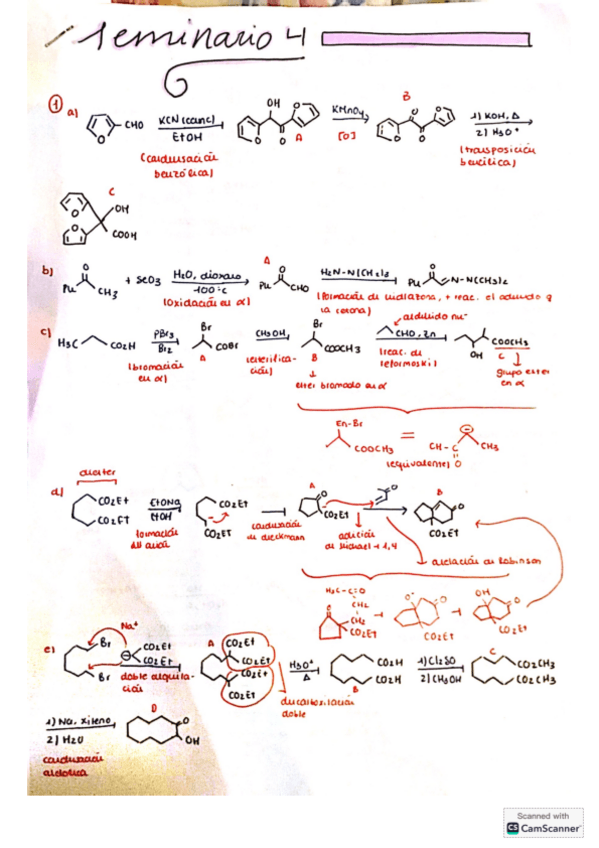 Seminario 4
① a)
CHO
KCN (canc)
EtOH
(condensación
benzólica)
OH
O
A
KMnO4
[O]
B
O
1) KOH, Δ
2) H3O+
(transposición
bencílica)
C
OH
COOH
b)
O
CH3
+ SeO3
H2O, dioxano
100°C
(Oxidación en α)
A
O
CHO
H2N-N(CH3)2
N-N(CH3)2
c)
H3C
CO2H
PBr3
Br2
(bromación
en α)
Br
COBr
A
CH3OH
(esterifica-
ción)
Br
COOCH3
B
ester bromado en α
CHO, Zn
(reac. de
reformoski)
COOCH3
OH
C
grupo ester
en α
Zn-Br
COOCH3
=
CH-C
CH3
O
(equivalente)
d)
diester
CO2Et
CO2Et
EtONa
EtOH
formación
del anión
CO2Et
CO2Et
condensación
de dieckmann
A
O
CO2Et
adición
de Michael 1,4
B
O
CO2Et
anelación de Robinson
H3C-C=O
CH2
CH2
CO2Et
CO2Et
OH
CO2Et
e)
Na+
Br
Br
CO2Et
CO2Et
doble alquila-
ción
A
CO2Et
CO2Et
CO2Et
CO2Et
descarboxilación
doble
H3O+
Δ
CO2H
CO2H
B
1) Cl2SO
2) CH3OH
C
CO2CH3
CO2CH3
1) Na, xileno
2) H2O
condensación
aldólica
D
O
OH
Scanned with
CS CamScanner